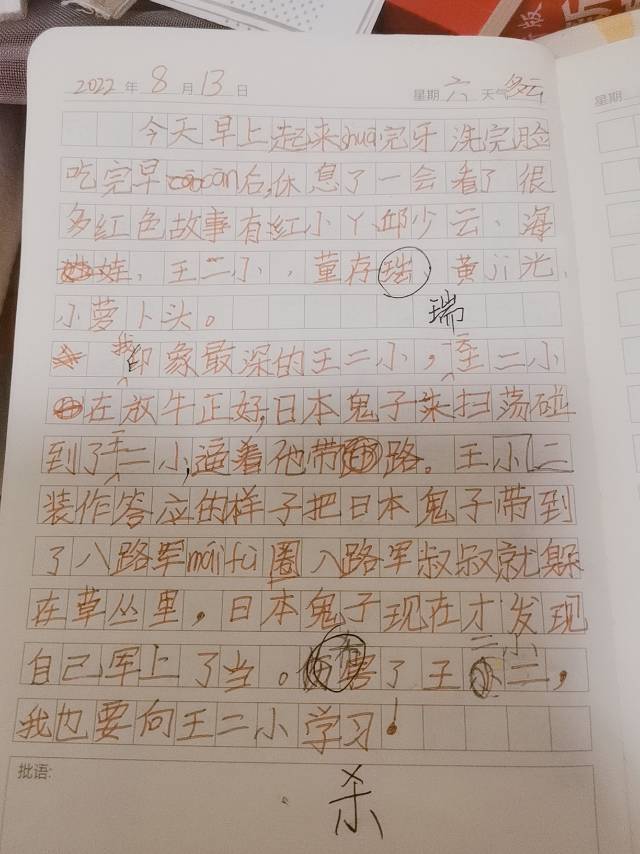 2022年8月13日 星期六 天气多云
今天早上,起来shuā完牙洗完脸
吃完早cān后,休息了一会看了很
多红色故事有红小丫邱少云、海
娃、王二小,董存瑞、黄jì光、
小萝卜头。 瑞
我印象最深的王二小,王二小
在放牛正好,日本鬼子来扫荡碰
到了王二小,逼着他带路。王小二
装作答应的样子把日本鬼子带到
了八路军mái fú圈八路军叔叔就躲
在草丛里,日本鬼子现在才发现
自己军上了当。杀害了王二小,
我也要向王二小学习!
批语:
杀
星期